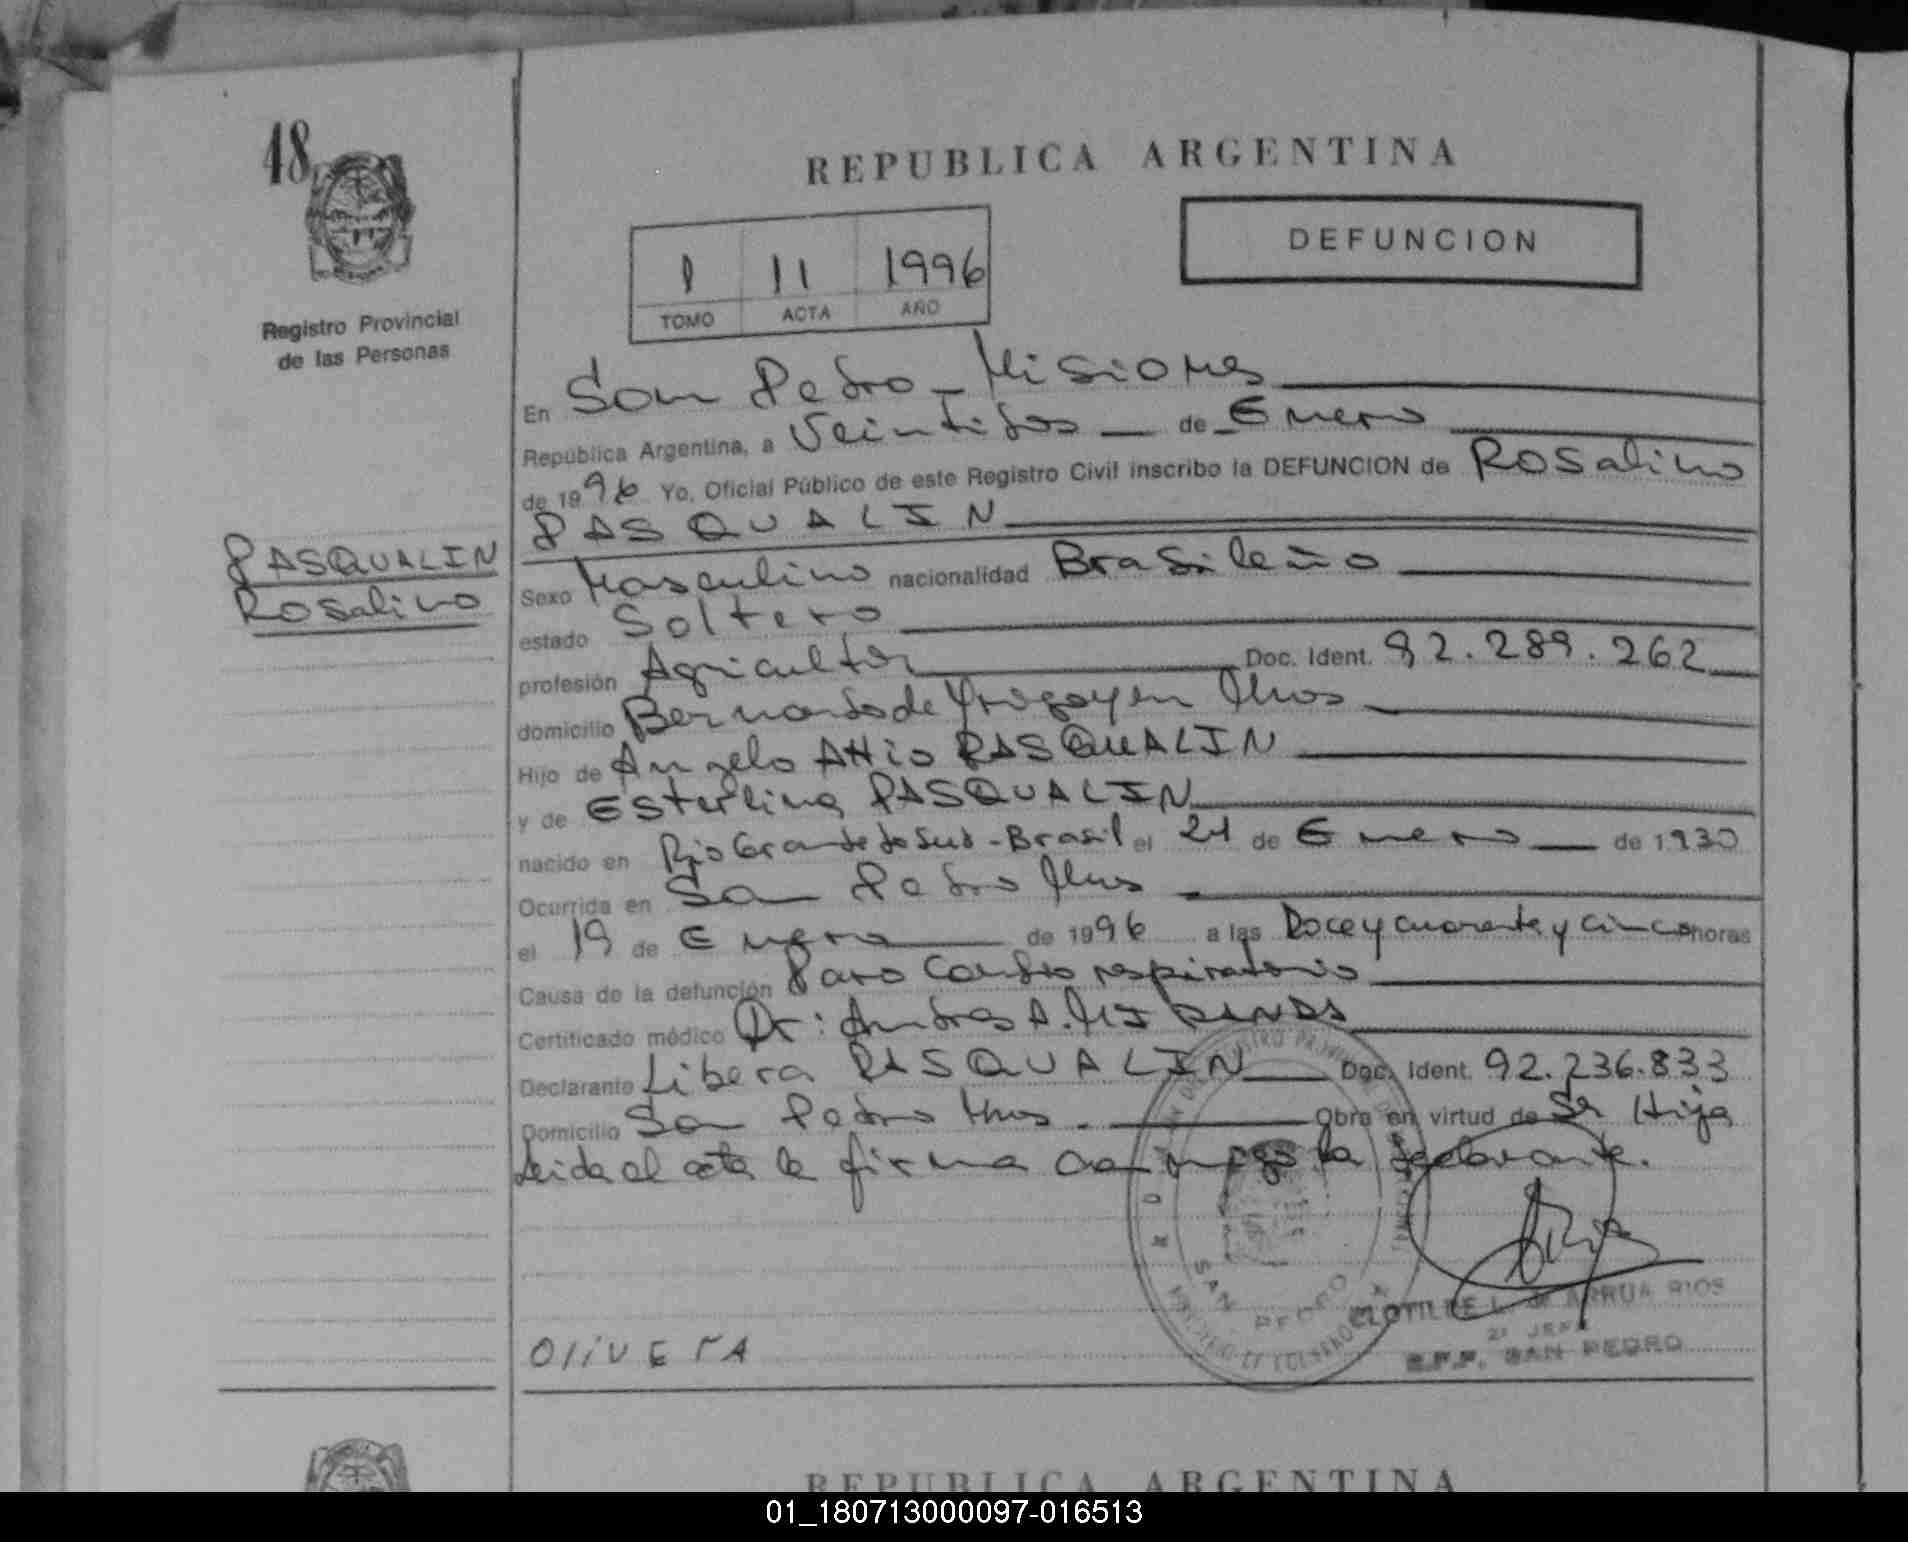 48
REPUBLICA ARGENTINA
DEFUNCION
1 11 1996
TOMO ACTA AÑO
Registro Provincial
de las Personas
En San Pedro - Misiones
República Argentina, a Veintidos de Enero
de 1996 Yo, Oficial Público de este Registro Civil inscribo la DEFUNCION de Rosalino
PASQUALIN
PASQUALIN
Rosalino
Sexo Masculino nacionalidad Brasileño
estado Soltero
profesión Agricultor Doc. Ident. 92.289.262
domicilio Bernardo de Yrigoyen Mnes
Hijo de Angelo Attio PASQUALIN
y de Esterlina PASQUALIN
nacido en Rio Grande do Sud - Brasil el 24 de Enero de 1930
Ocurrida en San Pedro Mnes
el 19 de Enero de 1996 a las Doce y cuarenta y cinco horas
Causa de la defunción Paro Cardio respiratorio
Certificado médico Dr: Andres A.
Declarante Libera PASQUALIN Doc. Ident. 92.236.833
Domicilio San Pedro Mnes. Obra en virtud de Sr Hija
Leida el acta la firma conmigo la declarante.
SAN PEDRO
CLOTILDE L. de ARRUA RIOS
2º JEFE
SAN PEDRO
OliVErA
REPUBLICA ARGENTINA
01_180713000097-016513